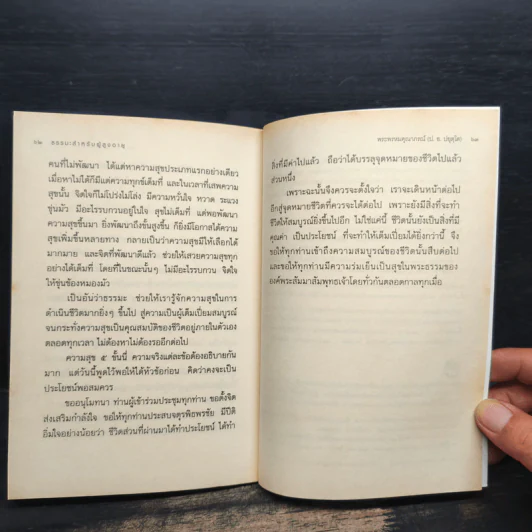 ๖๒ ธรรมะสำหรับผู้สูงอายุ
คนที่ไม่พัฒนา ได้แต่หาความสุขประเภทแรกอย่างเดียว
เมื่อหาไม่ได้ก็มีแต่ความทุกข์เต็มที่ และในเวลาที่เสพความ
สุขนั้น จิตใจก็ไม่โปร่งไม่โล่ง มีความหวั่นใจ หวาด ระแวง
ขุ่นมัว มีอะไรรบกวนอยู่ในใจ สุขไม่เต็มที่ แต่พอพัฒนา
ความสุขขึ้นมา ยิ่งพัฒนาถึงขั้นสูงขึ้น ก็ยิ่งมีโอกาสได้ความ
สุขเพิ่มขึ้นหลายทาง กลายเป็นว่าความสุขมีให้เลือกได้
มากมาย และจิตที่พัฒนาดีแล้ว ช่วยให้เสวยความสุขทุก
อย่างได้เต็มที่ โดยที่ในขณะนั้นๆ ไม่มีอะไรรบกวน จิตใจ
ให้ขุ่นข้องหมองมัว
เป็นอันว่าธรรมะ ช่วยให้เรารู้จักความสุขในการ
ดำเนินชีวิตมากยิ่งๆ ขึ้นไป สู่ความเป็นผู้เต็มเปี่ยมสมบูรณ์
จนกระทั่งความสุขเป็นคุณสมบัติของชีวิตอยู่ภายในตัวเอง
ตลอดทุกเวลา ไม่ต้องหาไม่ต้องรออีกต่อไป
ความสุข ๕ ขั้นนี้ ความจริงแต่ละข้อต้องอธิบายกัน
มาก แต่วันนี้พูดไว้พอให้ได้หัวข้อก่อน คิดว่าคงจะเป็น
ประโยชน์พอสมควร
ขออนุโมทนา ท่านผู้เข้าร่วมประชุมทุกท่าน ขอตั้งจิต
ส่งเสริมกำลังใจ ขอให้ทุกท่านประสบจตุรพิธพรชัย มีปีติ
อิ่มใจอย่างน้อยว่า ชีวิตส่วนที่ผ่านมาได้ทำประโยชน์ ได้ทำ
พระพรหมคุณาภรณ์ (ป. อ. ปยุตฺโต) ๖๓
สิ่งที่มีค่าไปแล้ว ถือว่าได้บรรลุจุดหมายของชีวิตไปแล้ว
ส่วนหนึ่ง
เพราะฉะนั้นจึงควรจะตั้งใจว่า เราจะเดินหน้าต่อไป
อีกสู่จุดหมายของชีวิตที่ควรจะได้ต่อไป เพราะยังมีสิ่งที่จะทำ
ชีวิตให้สมบูรณ์ยิ่งขึ้นไปอีก ไม่ใช่แค่นี้ ชีวิตนั้นยังเป็นสิ่งที่มี
คุณค่า เป็นประโยชน์ ที่จะทำให้เต็มเปี่ยมได้ยิ่งกว่านี้ จึง
ขอให้ทุกท่านเข้าถึงความสมบูรณ์ของชีวิตนั้นสืบต่อไป
และขอให้ทุกท่านมีความร่มเย็นเป็นสุขในพระธรรมของ
องค์พระสัมมาสัมพุทธเจ้าโดยทั่วกันตลอดกาลทุกเมื่อ